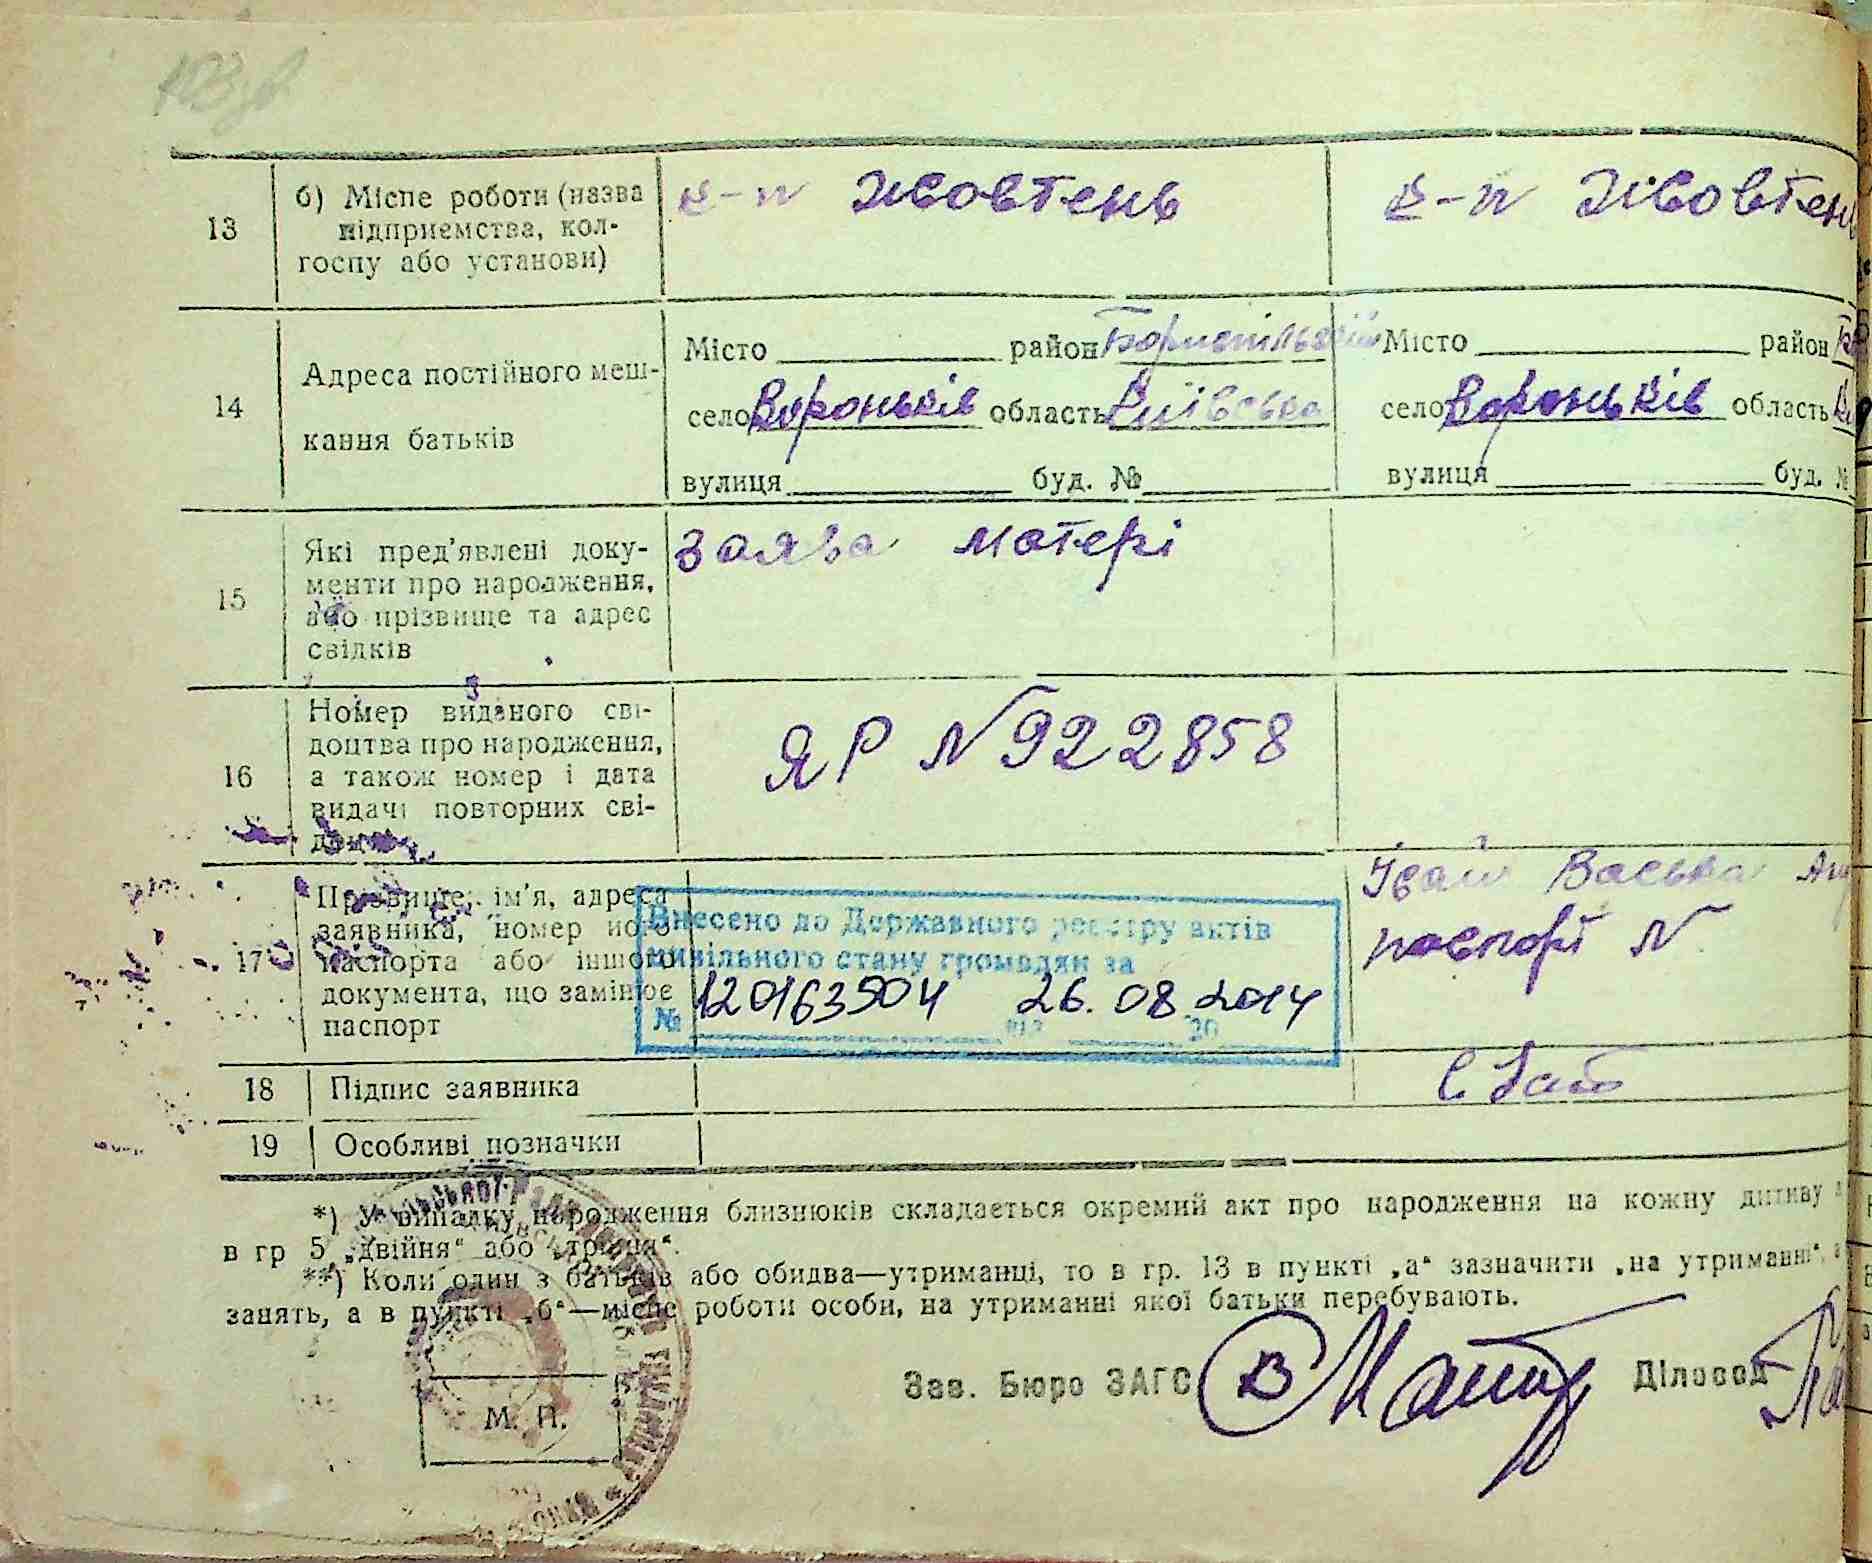 13
б) Місце роботи (назва
підприємства, кол-
госпу або установи)
к-п Жовтень
к-п Жовтень
14
Адреса постійного меш-
кання батьків
Місто район Бориспільський
село Вороньків область Київська
вулиця буд. №
Місто район
село Вороньків область
вулиця буд. №
15
Які пред'явлені доку-
менти про народження,
або прізвище та адрес
свідків
заява матері
16
Номер виданого сві-
доцтва про народження,
а також номер і дата
видачі повторних сві-
ЯР №922858
17
Прізвище, ім'я, адреса
заявника, номер його
паспорта або іншого
документа, що замінює
паспорт
Внесено до Державного реєстру актів
цивільного стану громадян за
№ 120163504 від 26.08.2014
20
паспорт №
18
Підпис заявника
19
Особливі позначки
*) У випадку народження близнюків складається окремий акт про народження на кожну дитину
в гр 5 „двійня“ або „трійня“.
**) Коли один з батьків або обидва—утриманці, то в гр. 13 в пункті „а“ зазначити „на утриманні“,
занять, а в пункті „б“—місце роботи особи, на утриманні якої батьки перебувають.
Зав. Бюро ЗАГС
Діловод
М. П.